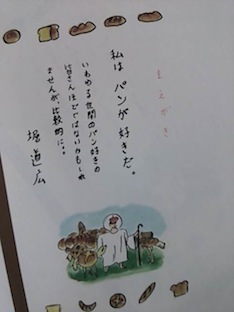 まえがき
私は パンが 好きだ。
いわゆる世間のパン好きの
皆さんほどではないかもしれ
ませんが、比較的に。
堀 道広